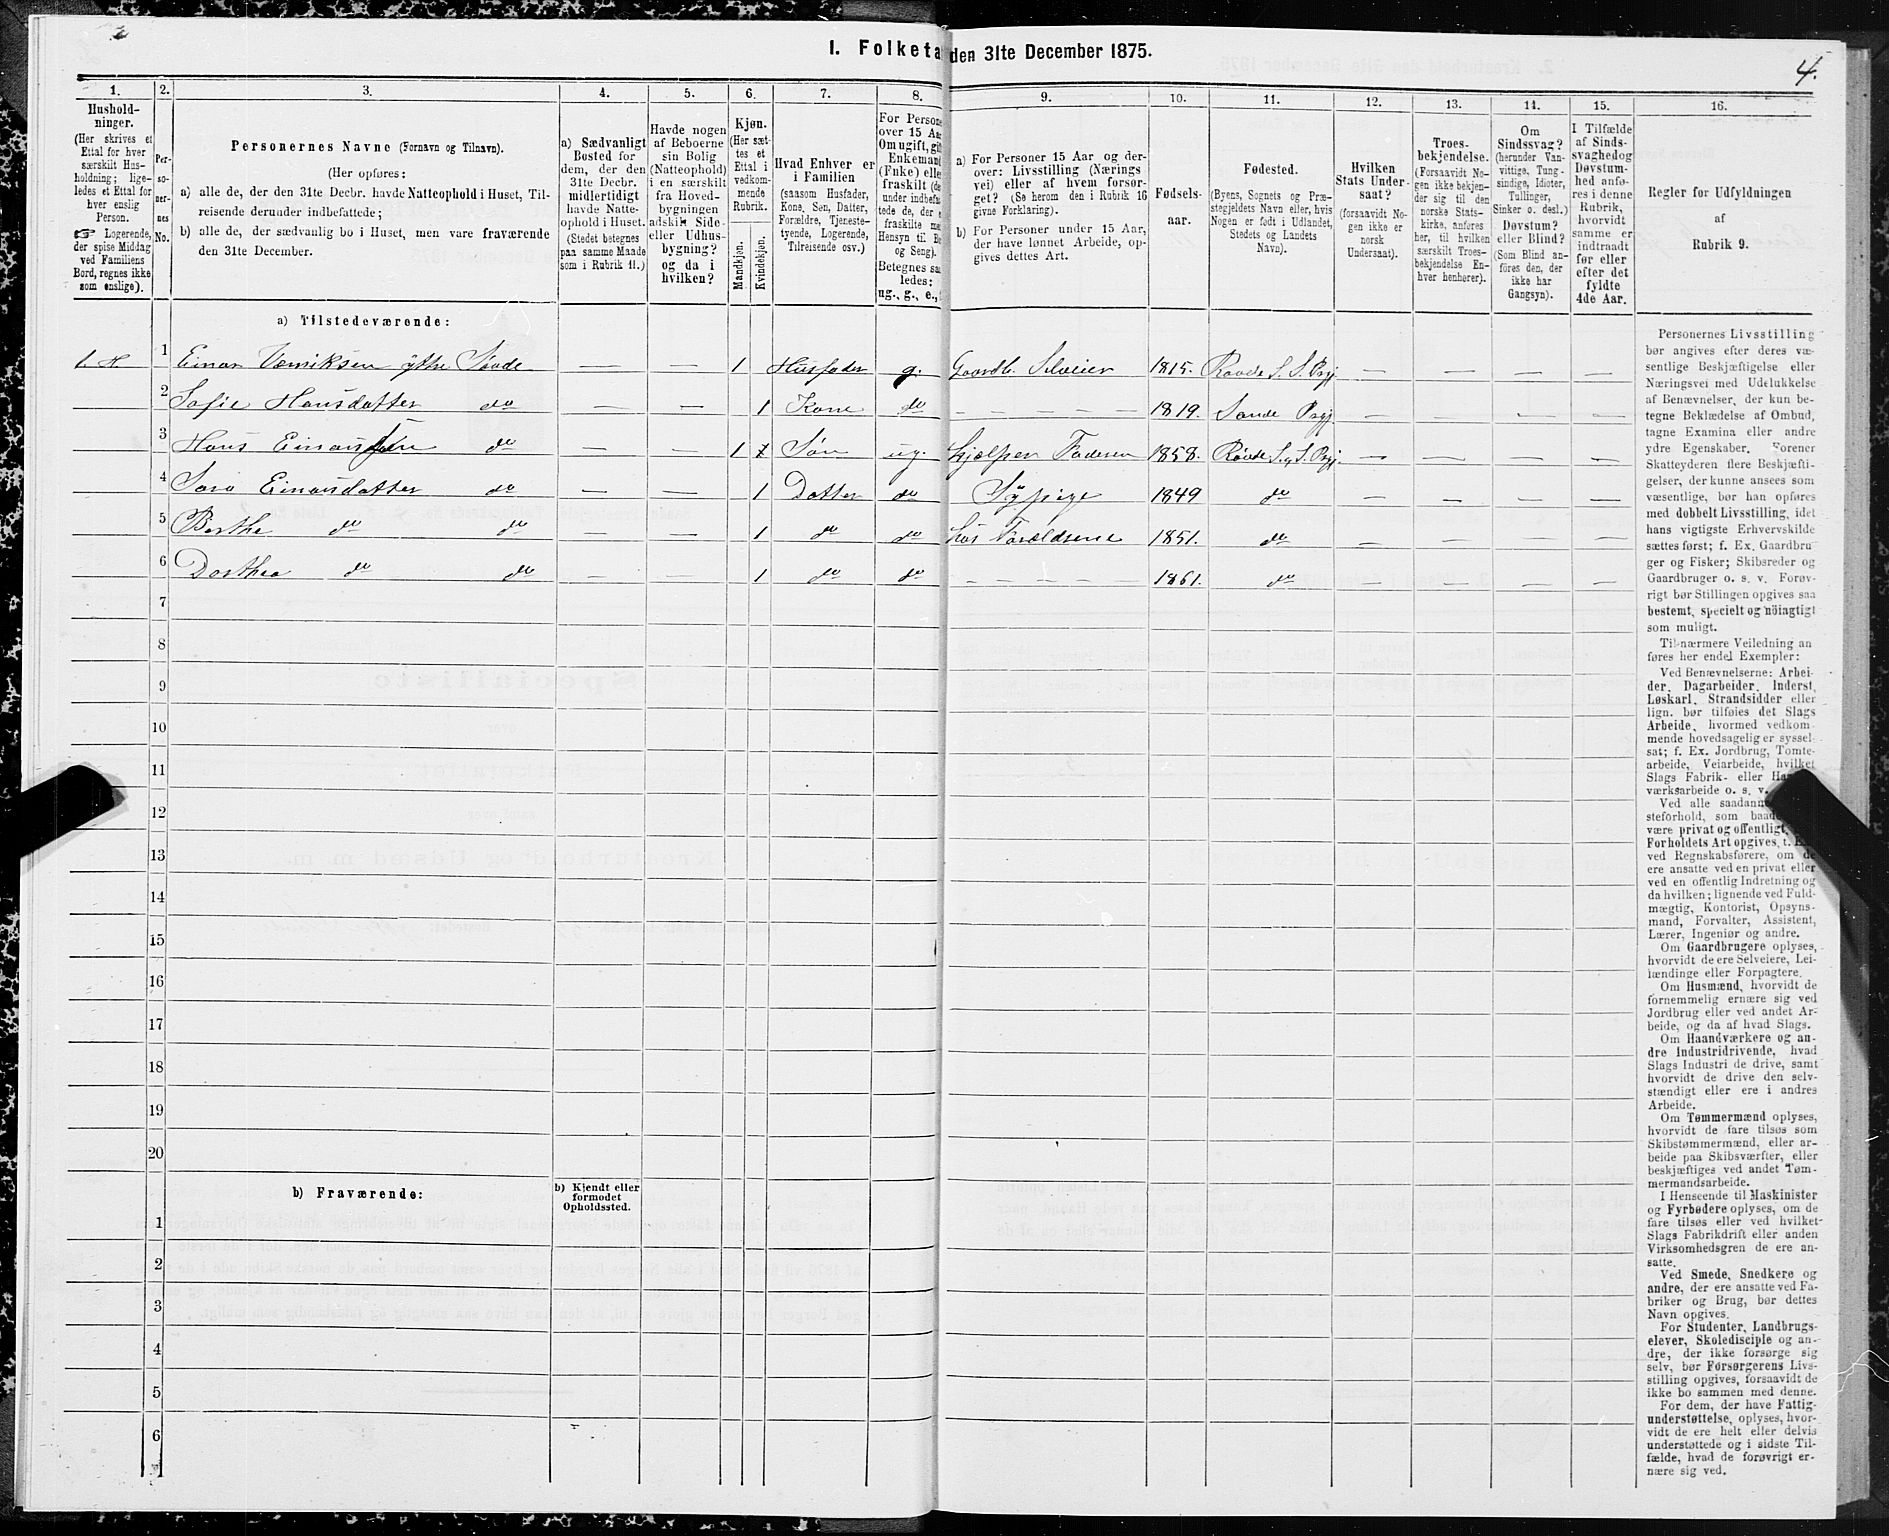 1. Folketa den 31te December 1875.
4.
1. 2. 3. 4. 5. 6. 7. 8. 9. 10. 11. 12. 13. 14. 15. 16.
Hushold-
ninger.
(Her skrives et
Ettal for hver
særskilt Hus-
holdning; lige-
ledes et Ettal for
hver enslig
Person.
☞ Logerende,
der spise Middag
ved Familiens
Bord, regnes ikke
som enslige).
Per-
so-
ner-
nes
No.
Personernes Navne (Fornavn og Tilnavn).
(Her opføres:
a) alle de, der den 31te Decbr. havde Natteophold i Huset, Til-
reisende derunder indbefattede;
b) alle de, der sædvanlig bo i Huset, men vare fraværende
den 31te December.
a) Sædvanligt
Bosted for
dem, der den
31te Decbr.
midlertidigt
havde Natte-
ophold i Huset.
(Stedet betegnes
paa samme Maade
som i Rubrik 11.)
Havde nogen
af Beboerne
sin Bolig
(Natteophold)
i en særskilt
fra Hoved-
bygningen
adskilt Side-
eller Udhus-
bygning?
og da i
hvilken?
Kjøn.
(Her sæt-
tes et
Ettal i
vedkom-
mende
Rubrik.
Mandkjøn.
Kvindekjøn.
Hvad Enhver er
i Familien
(saasom Husfader,
Kone, Søn, Datter,
Forældre, Tjeneste-
tyende, Logerende,
Tilreisende osv.)
For Persone
over 15 Aa
Om ugift, gif
Enkemand
(Enke) elle
fraskilt (de
under indbefat-
tede de, der e
fraskilte me
Hensyn til B
og Seng).
Betegnes saa
ledes:
ug., g., e.,
a) For Personer 15 Aar og der-
over: Livsstilling (Nærings
vei) eller af hvem forsør-
get? (Se herom den i Rubrik 16
givne Forklaring).
b) For Personer under 15 Aar,
der have lønnet Arbeide, op-
gives dettes Art.
Fødsels-
aar.
Fødested.
(Byens, Sognets og Præ-
stegjeldets Navn eller, hvis
Nogen er født i Udlandet,
Stedets og Landets
Navn).
Hvilken
Stats Under-
saat?
(forsaavidt No-
gen ikke er
norsk
Undersaat).
Troes-
bekjendelse.
(Forsaavidt No-
gen ikke bekjen-
der sig til den
norske Stats-
kirke, anføres
her, til hvilken
særskilt Troes-
bekjendelse En-
hver henhører).
Om
Sindssvag?
(herunder Van-
vittige, Tung-
sindige, Idioter,
Tullinger,
Sinker o. desl.)
Døvstum?
eller Blind?
(Som Blind an-
føres den, der
ikke har
Gangsyn).
I Tilfælde
af Sinds-
svaghed og
Døvstum-
hed anfø-
res i denne
Rubrik,
hvorvidt
samme er
indtraadt
før eller
efter det
fyldte
4de Aar.
Regler for Udfyldningen
af
Rubrik 9.
a) Tilstedeværende:
1. H. 1 Einar Henriksen ytre Søvde — — 1 Husfader g. Gaardb. Selveier 1815. Røvde S. S. Prgj. — — — —
2 Sofie Hansdatter do — — 1 Kone do — — — — 1819. Sande Prgj. — — — —
3 Hans Einarssen do — — 1 Søn ug. hjælper Faderen 1858. Røvde S. S. Prgj. — — — —
4 Sara Einarsdatter do — — 1 Datter do Sypige 1849 do — — — —
5 Berthe do do — — 1 do do hos Forældrene 1851. do — — — —
6 Dorthea do do — — 1 do do — — — — 1861. do — — — —
7
8
9
10
11
12
13
14
15
16
17
18
19
20
b) Fraværende:
b) Kjendt eller
formodet
Opholdssted.
1
2
3
4
5
6
Personernes Livsstilling
bør angives efter deres væ-
sentlige Beskjæftigelse eller
Næringsvei med Udelukkelse
af Benævnelser, der kun be-
tegne Beklædelse af Ombud,
tagne Examina eller andre
ydre Egenskaber. Forener
Skatteyderen flere Beskjæfti-
gelser, der kunne ansees som
væsentlige, bør han opføres
med dobbelt Livsstilling, idet
hans vigtigste Erhvervskilde
sættes først; f. Ex. Gaardbru-
ger og Fisker; Skibsreder og
Gaardbruger o. s. v. Forøv-
rigt bør Stillingen opgives saa
bestemt, specielt og nøiagtigt
som muligt.
Til nærmere Veiledning an
føres her endel Exempler:
Ved Benævnelserne: Arbei-
der, Dagarbeider, Inderst,
Løskarl, Strandsidder eller
lign. bør tilføies det Slags
Arbeide, hvormed vedkom-
mende hovedsagelig er syssel-
sat; f. Ex. Jordbrug, Tomte-
arbeide, Veiarbeide, hvilket
Slags Fabrik- eller Ha
værksarbeide o. s. v.
Ved alle saadanne
steforhold, som baade
være privat og offentligt,
Forholdets Art opgives, t. E
ved Regnskabsførere, om de
ere ansatte ved en privat eller
ved en offentlig Indretning og
da hvilken; lignende ved Fuld-
mægtig, Kontorist, Opsyns-
mand, Forvalter, Assistent,
Lærer, Ingeniør og andre.
Om Gaardbrugere oplyses,
hvorvidt de ere Selveiere, Lei-
lændinge eller Forpagtere.
Om Husmænd, hvorvidt de
fornemmelig ernære sig ved
Jordbrug eller ved andet Ar-
beide, og da af hvad Slags.
Om Haandværkere og an-
dre Industridrivende, hvad
Slags Industri de drive, samt
hvorvidt de drive den selv-
stændigt eller ere i andres
Arbeide.
Om Tømmermænd oplyses,
hvorvidt de fare tilsøs som
Skibstømmermænd, eller ar-
beide paa Skibsværfter, eller
beskjæftiges ved andet Tøm-
mermandsarbeide.
I Henseende til Maskinister
og Fyrbødere oplyses, om de
fare tilsøs eller ved hvilket
Slags Fabrikdrift eller anden
Virksomhedsgren de ere an-
satte.
Ved Smede, Snedkere og
andre, der ere ansatte ved Fa-
briker og Brug, bør dettes
Navn opgives.
For Studenter, Landbrugs-
elever, Skoledisciple og an-
dre, der ikke forsørge sig
selv, bør Forsørgerens Livs-
stilling opgives, forsaavidt de
ikke bo sammen med denne.
For dem, der have Fattig-
understøttelse, oplyses, hvor-
vidt de ere helt eller delvis
understøttede og i sidste Til-
fælde, hvad de forøvrigt er-
nære sig ved.